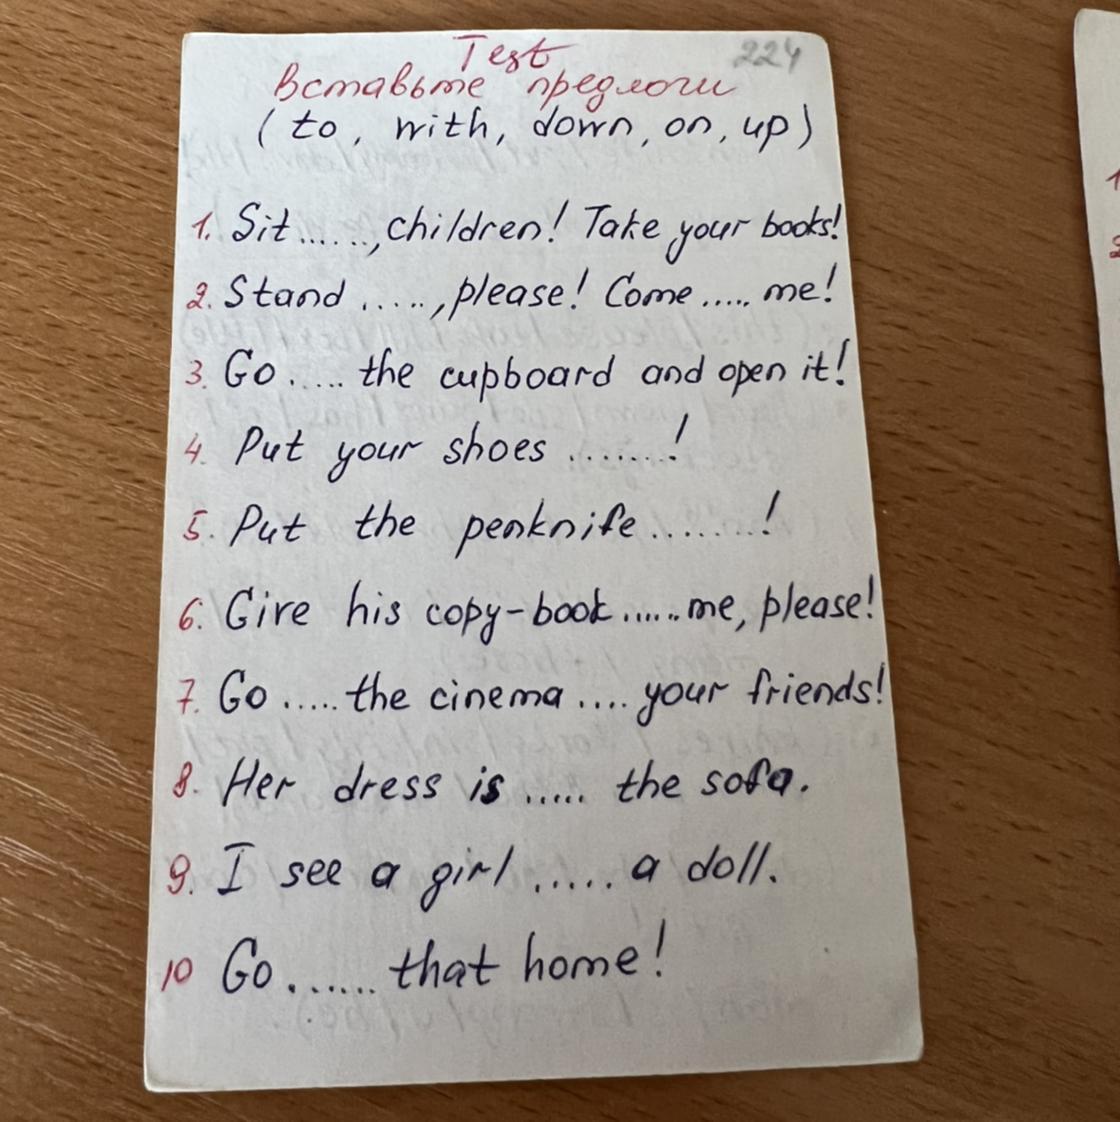 Test 224
Вставьте предлоги
(to, with, down, on, up)
1. Sit ......, children! Take your books!
2. Stand ....., please! Come ..... me!
3. Go ..... the cupboard and open it!
4. Put your shoes .......!
5. Put the penknife .......!
6. Give his copy-book ...... me, please!
7. Go ..... the cinema .... your friends!
8. Her dress is ..... the sofa.
9. I see a girl ..... a doll.
10 Go ....... that home!